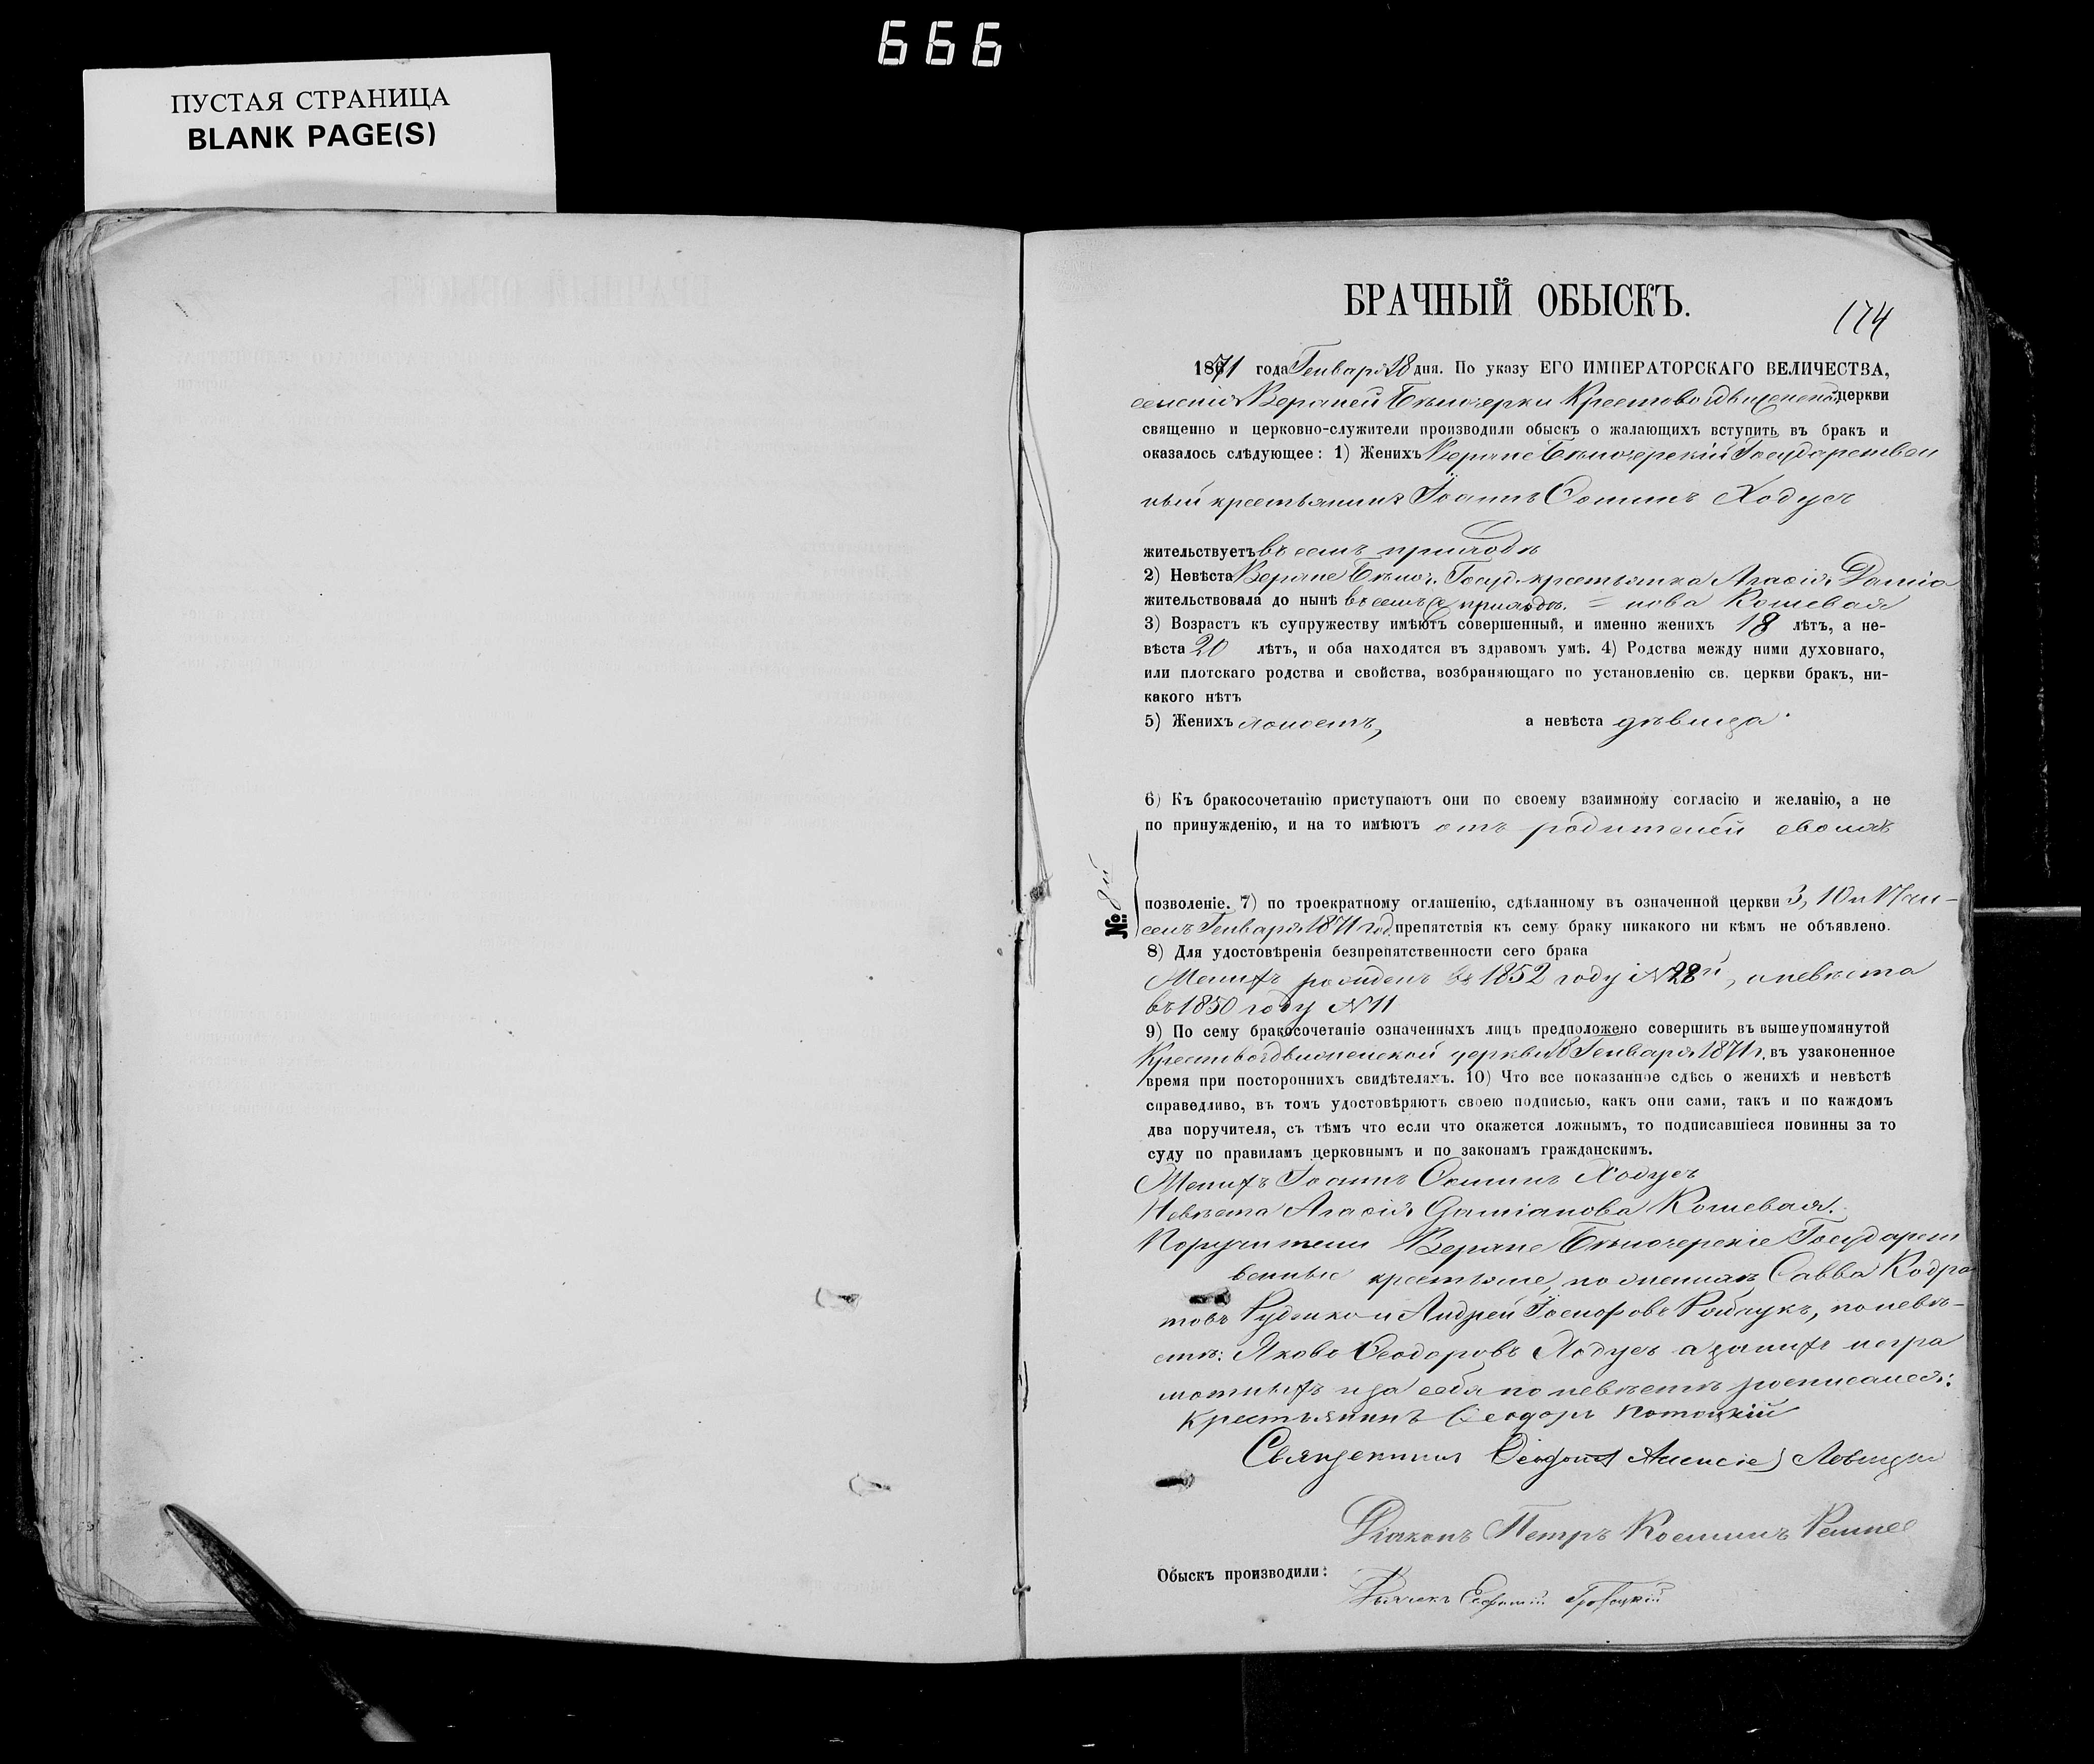 666
ПУСТАЯ СТРАНИЦА
BLANK PAGE(S)
БРАЧНЫЙ ОБЫСКЪ.
174
1871 года Генваря 18 дня. По указу ЕГО ИМПЕРАТОРСКАГО ВЕЛИЧЕСТВА,
селенія Верхней Бѣлозерки Крестовоздвиженской церкви
священно и церковно-служители производили обыскъ о жалающихъ вступить въ бракъ и
оказалось слѣдующее: 1) Женихъ Верхне Бѣлозерскій Государствен
ный крестьянинъ Іоаннъ Ѳоминъ Ходусъ
жительствуетъ въ семъ приходѣ
2) Невѣста Верхне Бѣлоз. Госуд. крестьянка Агафія Даміа
жительствовала до нынѣ въ семъ приходѣ. = нова Кошевая
3) Возрастъ къ супружеству имѣютъ совершенный, и именно женихъ 18 лѣтъ, а не-
вѣста 20 лѣтъ, и оба находятся въ здравомъ умѣ. 4) Родства между ними духовнаго,
или плотскаго родства и свойства, возбраняющаго по установленію св. церкви бракъ, ни-
какого нѣтъ
5) Женихъ холостъ, а невѣста дѣвица.
6) Къ бракосочетанію приступаютъ они по своему взаимному согласію и желанію, а не
по принужденію, и на то имѣютъ отъ родителей своихъ
№: 8й
позволеніе. 7) по троекратному оглашенію, сдѣланному въ означенной церкви 3, 10 и 17 чи-
селъ Генваря 1871 год. препятствія къ сему браку никакого ни кѣмъ не объявлено.
8) Для удостовѣренія безпрепятственности сего брака
Женихъ рожденъ въ 1852 году № 28й, а невѣста
въ 1850 году № 11
9) По сему бракосочетаніе означенныхъ лицъ предположено совершить въ вышеупомянутой
Крестовоздвиженской церкви 18 Генваря 1871 г. въ узаконенное
время при постороннихъ свидѣтеляхъ. 10) Что все показанное сдѣсь о женихѣ и невѣстѣ
справедливо, въ томъ удостовѣряютъ своею подписью, какъ они сами, такъ и по каждомъ
два поручителя, съ тѣмъ что если что окажется ложнымъ, то подписавшіеся повинны за то
суду по правиламъ церковнымъ и по законамъ гражданскимъ.
Женихъ Іоаннъ Ѳоминъ Ходусъ
Невѣста Агафія Даміанова Кошевая.
Поручители Верхне Бѣлозерскіе Государст
венные крестьяне, по женихѣ Савва Кодра
товъ Руденко и Андрей Іосифовъ, по невѣ-
стѣ: Яковъ Ѳеодоровъ Ходусъ а за нихъ негра
мотныхъ и за себя по невѣстѣ росписался:
Крестьянинъ Ѳеодоръ Потоцкій
Священникъ Алексіе
Діаконъ Петръ Косминъ
Обыскъ производили: